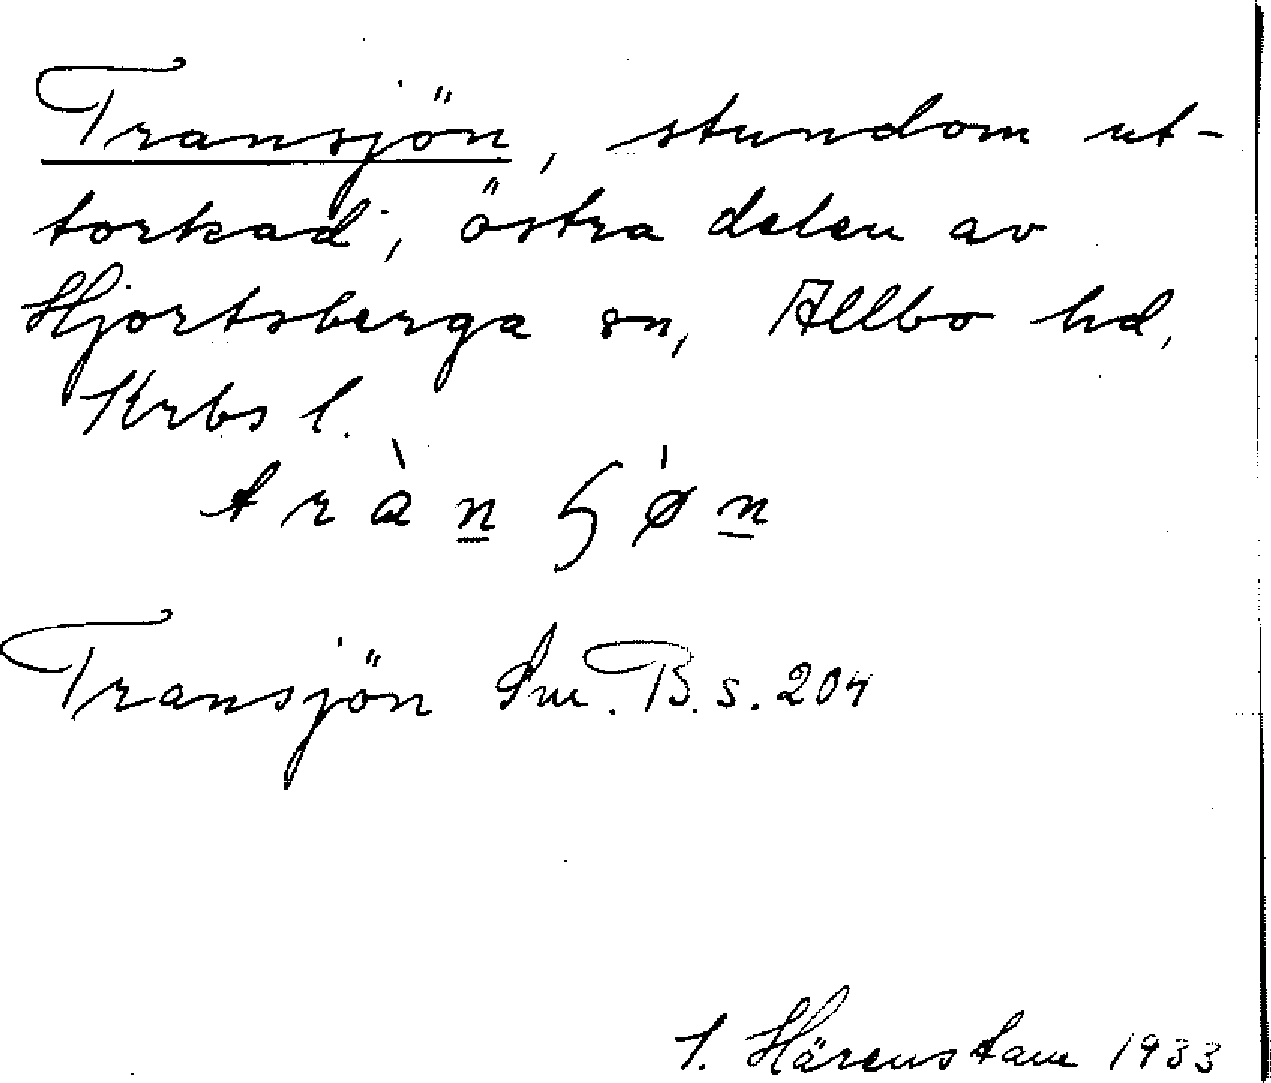 Transjön, stundom ut-
torkad, östra delen av
Hjortsberga sn, Allbo hd,
Krbs l.
tràn ɧǿn
Transjön Sm. B. s. 204
Härenstam 1933